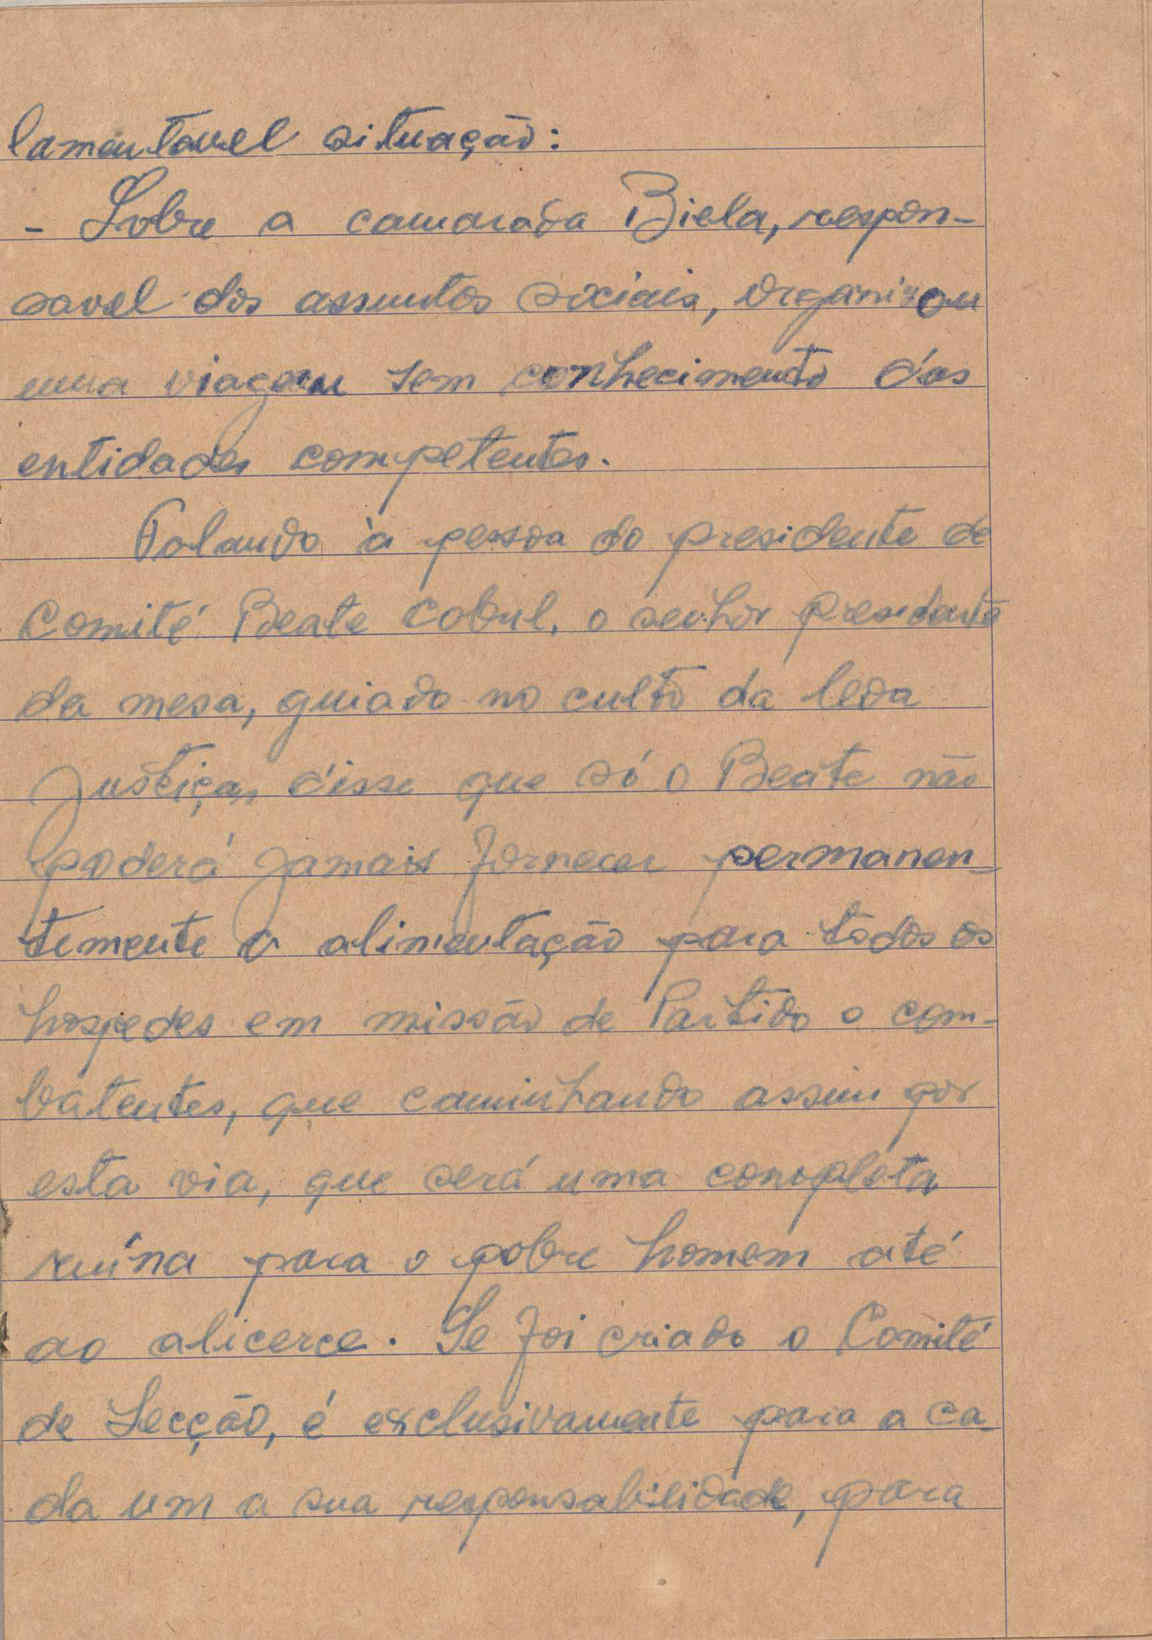 lamentavel situação:
- Sobre a camarada Biela, respon-
savel dos assuntos sociais, organizou
uma viagem sem conhecimento das
entidades competentes.
Falando à pessoa do presidente de
Comité Beate Cobul, o senhor presidente
da mesa, guiado no culto da leda
Justiça, disse que só o Beate não
poderá jamais fornecer permanen-
temente a alimentação para todos os
hospedes em missão de Partido o com-
batentes, que caminhando assim por
esta via, que será uma completa
ruína para o pobre homem até
ao alicerce. Se foi criado o Comité
de Secção, é exclusivamente para a ca
da um a sua responsabilidade, para